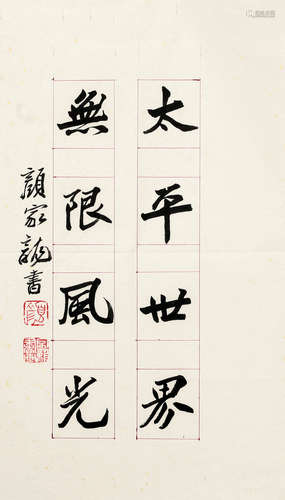 太平世界
無限風光
顏家龍書